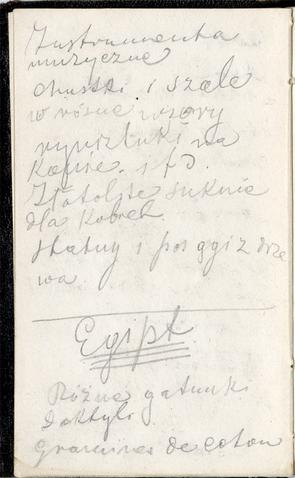 Instrumenta
muzyczne
chustki i szale
w różne wzory
rynsztuki na
Kawie. i t d.
Złotolste suknie
dla Kobiet.
statuy i posągi z drze
wa
Egipt
Różne gatunki
Daktyli
Graines de coton